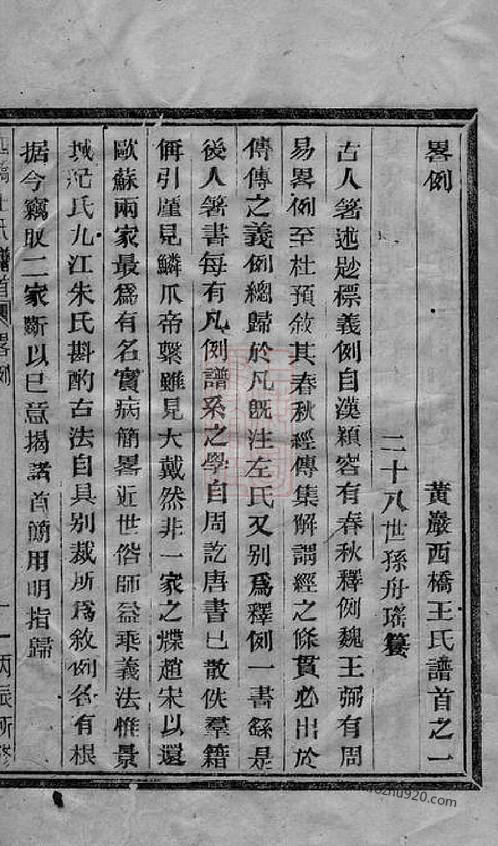 畧例
黃巖西橋王氏譜首之一
二十八世孫舟瑤纂
古人箸述尟標義例自漢穎容有春秋釋例魏王弼有周
易畧例至杜預敘其春秋經傳集解謂經之條貫必出於
傳傳之義例總歸於凡旣注左氏又別爲釋例一書繇是
後人箸書每有凡例譜系之學自周訖唐書已散佚羣籍
偁引廑見鱗爪帝繫雖見大戴然非一家之牒趙宋以還
歐蘇兩家最爲有名實病簡畧近世俗師益乖義法惟景
城紀氏九江朱氏斟酌古法自具別裁所爲敘例各有根
据今竊取二家斷以已意揭諸首簡用明指歸
西橋王氏譜首 畧例
一 丙辰所修